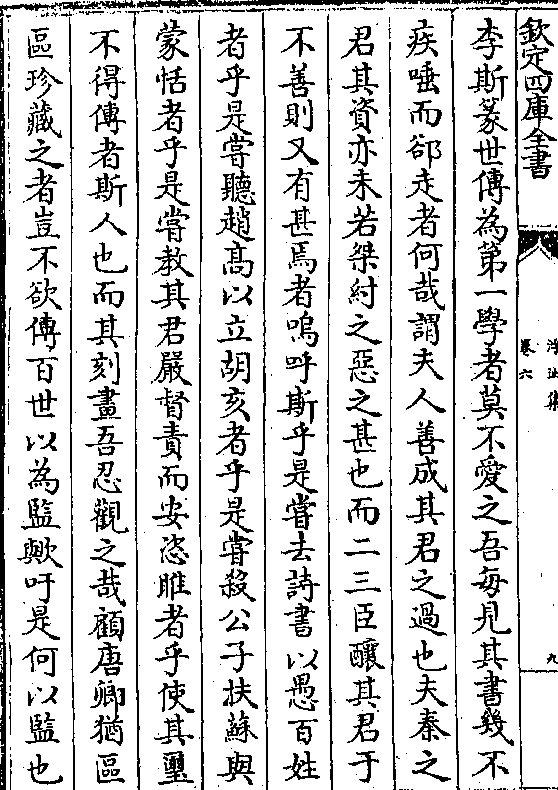 欽定四庫全書
卷六
九
李斯篆世傳為第一學者莫不愛之吾每見其書幾不
疾唾而郤走者何哉謂夫人善成其君之過也夫秦之
君其資亦未若桀紂之惡之甚也而二三臣釀其君于
不善則又有甚焉者嗚呼斯乎是嘗去詩書以愚百姓
者乎是嘗聽趙髙以立胡亥者乎是嘗殺公子扶蘇與
蒙恬者乎是嘗教其君嚴督責而安恣睢者乎使其璽
不得傳者斯人也而其刻畫吾忍觀之哉顧唐卿猶區
區珍藏之者豈不欲傳百世以為監歟吁是何以監也